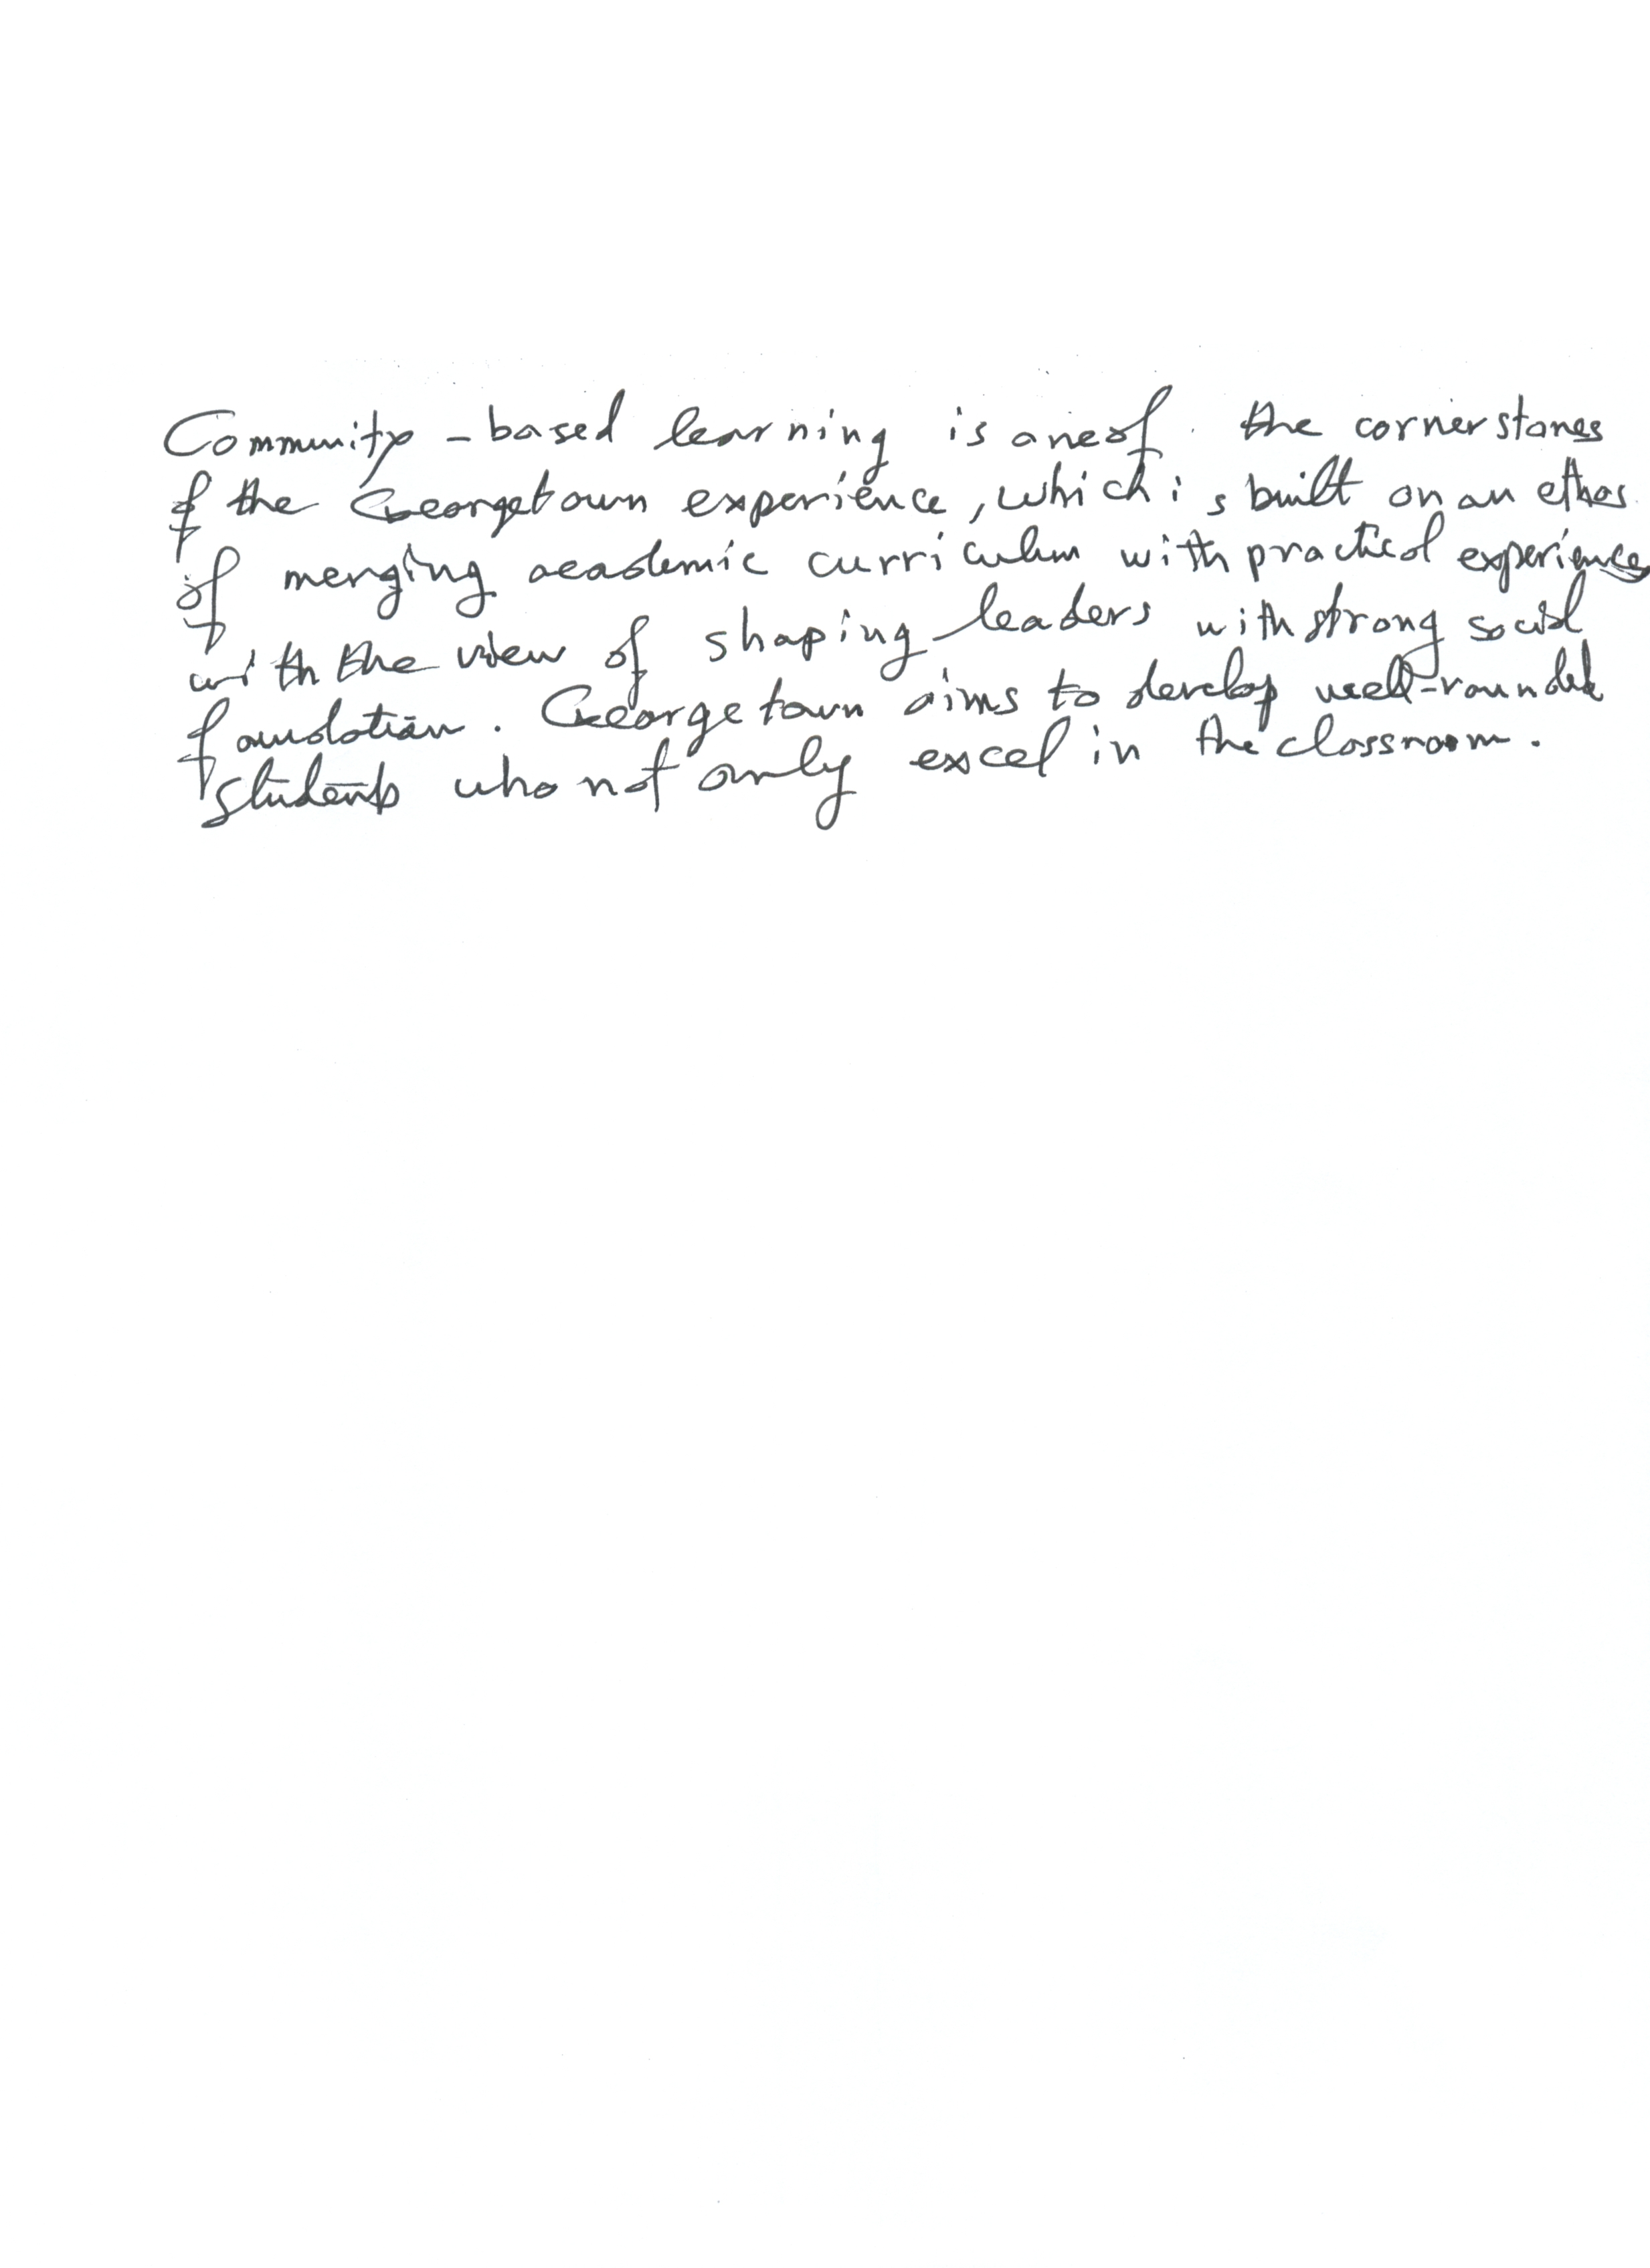 Community-based learning is one of the cornerstones
of the Georgetown experience, which is built on an ethos
of merging academic curriculum with practical experiences
with the view of shaping leaders with strong social
foundation. Georgetown aims to develop well-rounded
students who not only excel in the classroom.